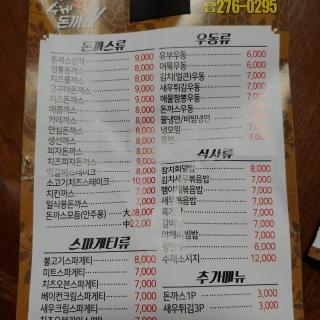 수제
돈까스!
☎276-0295
돈까스류
돈까스정식 9,000
정통돈까스 8,000
치즈롤까스 9,000
고구마돈까스 9,000
치즈돈까스 9,000
매콤까스 9,000
카레까스 9,000
안심돈까스 9,000
생선까스 9,000
피자돈까스 9,000
치즈피자돈까스 9,000
스테이크 8,000
소고기치즈+스테이크 10,000
치킨까스 7,000
일식풍돈까스 7,000
돈까스모듬(안주용) 大28,000
中22,000
스파게티류
불고기스파게티 8,000
미트스파게티 7,000
치즈오븐스파게티 8,000
베이컨크림스파게티 8,000
새우크림스파게티
우동류
유부우동 6,000
어묵우동 6,000
김치(얼큰)우동 7,000
새우튀김우동 7,000
해물짬뽕우동 7,000
돈까스우동
물냉면/비빔냉면
냉모밀
식사류
참치회덮밥 8,000
김치새우볶음밥
햄야채볶음밥
새우볶음밥
야채비빔밥
수제소시지 12,000
추가메뉴
돈까스1P 3,000
새우튀김3P 3,000